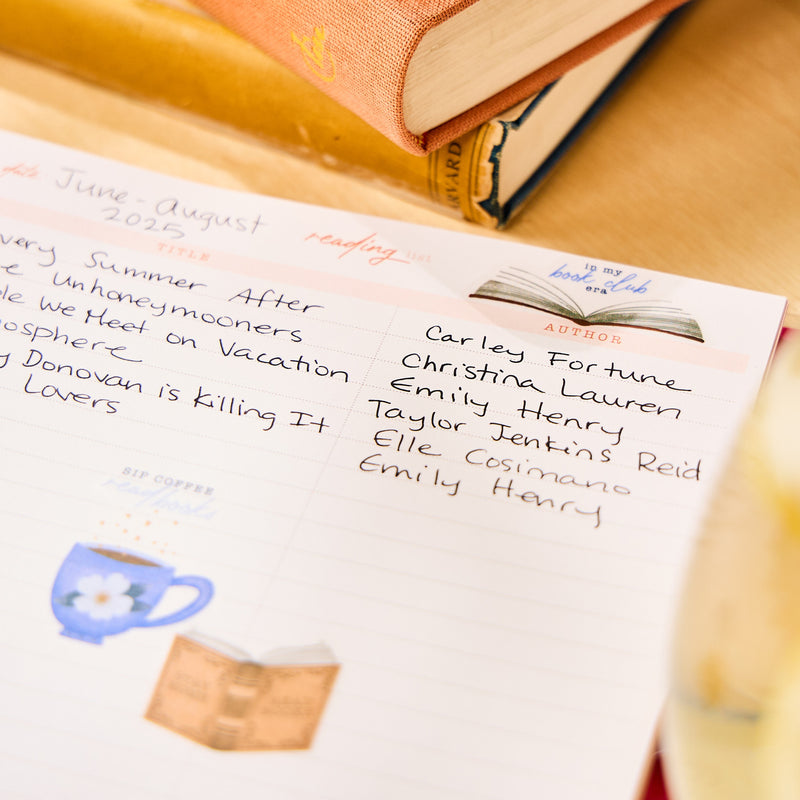 ARVARD
date June - August
2025
reading list
in my
book club
era
TITLE
AUTHOR
very Summer After
Carley Fortune
e Unhoneymooners
Christina Lauren
ple We Meet on Vacation
Emily Henry
mosphere
Taylor Jenkins Reid
y Donovan is Killing It
Elle Cosimano
Lovers
Emily Henry
SIP COFFEE
read books